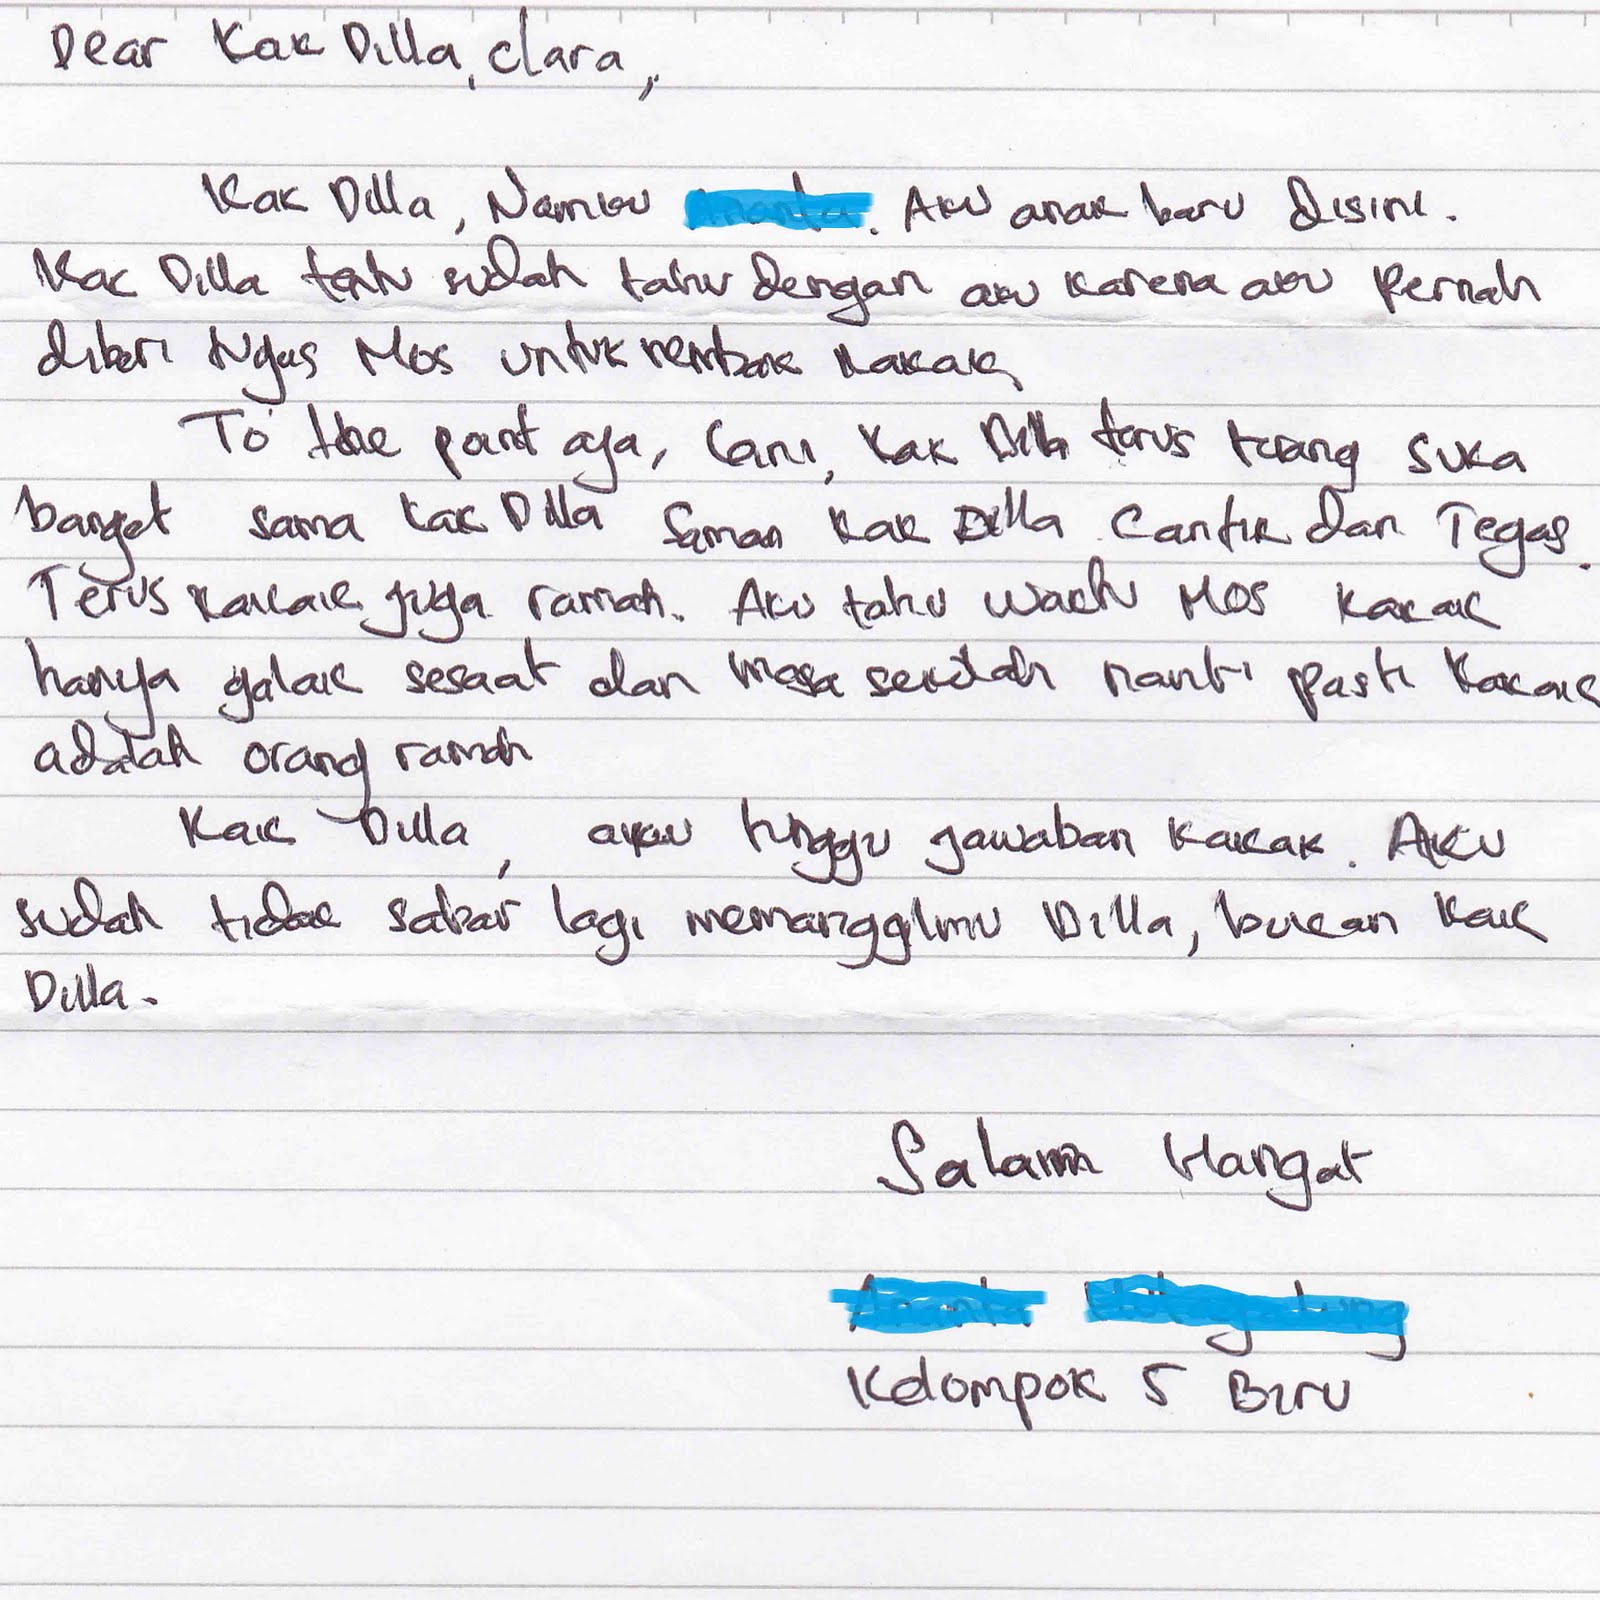 Dear Kak Dilla, Clara,
Kak Dilla, Namku . Aku anak baru disini.
Kak Dilla tentu sudah tahu dengan aku karena aku pernah
diberi tugas Mos untuk nembak kakak,
To the point aja, Kak Dilla terus terang suka
banget sama Kak Dilla Kak Dilla Cantik dan Tegas.
Terus kakak juga ramah. Aku tahu waktu MOS kakak
hanya galak sesaat dan masa sekolah nanti pasti Kakak
adalah orang ramah
Kak Dilla, aku tunggu jawaban kakak. Aku
sudah tidak sabar lagi memanggilmu Dilla, bukan Kak
Dilla.
Salam Hangat
Kelompok 5 Biru